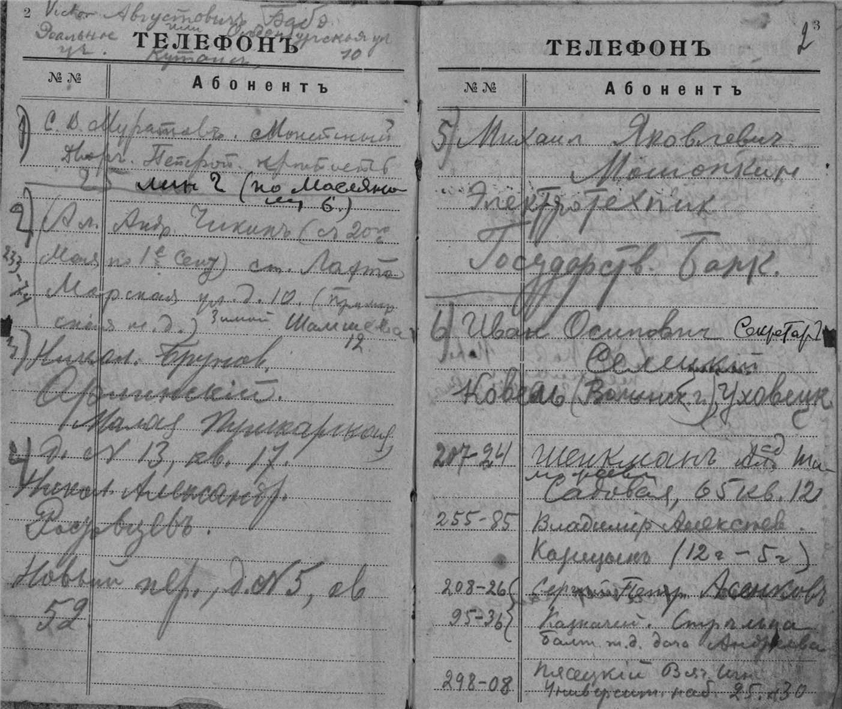 2
Victor Августовичъ
Реальное или Оренбургская ул
ул. Кутаиси, 10
ТЕЛЕФОНЪ
№№ Абонентъ
1) С. В. Муратовъ. Монетный
Дворъ. Петроп. крѣпость
25 лин 2 (по Масляно
му 6.)
2) Ал. Андр. Чикинъ (съ 20го
Мая по 1е Сен) ст. Лахта
233-
Морская ул. д. 10. (Примор
ская ж.д.) Зимой Шамшева
12
3) Никол. Брунов.
Орлинскій.
Малая Пушкарская,
д. N 13, кв. 17.
4 Никол. Александр.
Новый пер., д. N 5, кв
52
3
2
ТЕЛЕФОНЪ
№№ Абонентъ
5) Михаил Яковлевич.
Мошонкин
Электротехник
Государств. Банк.
6) Иван Осипович Секретарь
Селецкій
Ковель (Волынск. г.) Уховецк
207-24 Шенкманъ
Садовая, 65 кв. 12
255-85 Владимір Алексѣев.
Карицынъ (12 г - 5 г)
208-26 Сергѣй Петр. Асенковъ
95-36 Казначей. Стрѣльна
Балт ж.д. дача Андреева
298-08 Пясецкій Вяч
Университ наб 25. 30